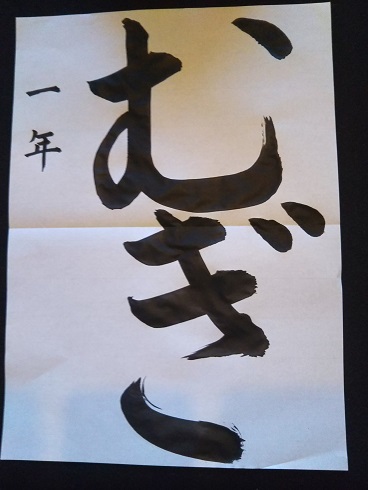 むぎ
一年